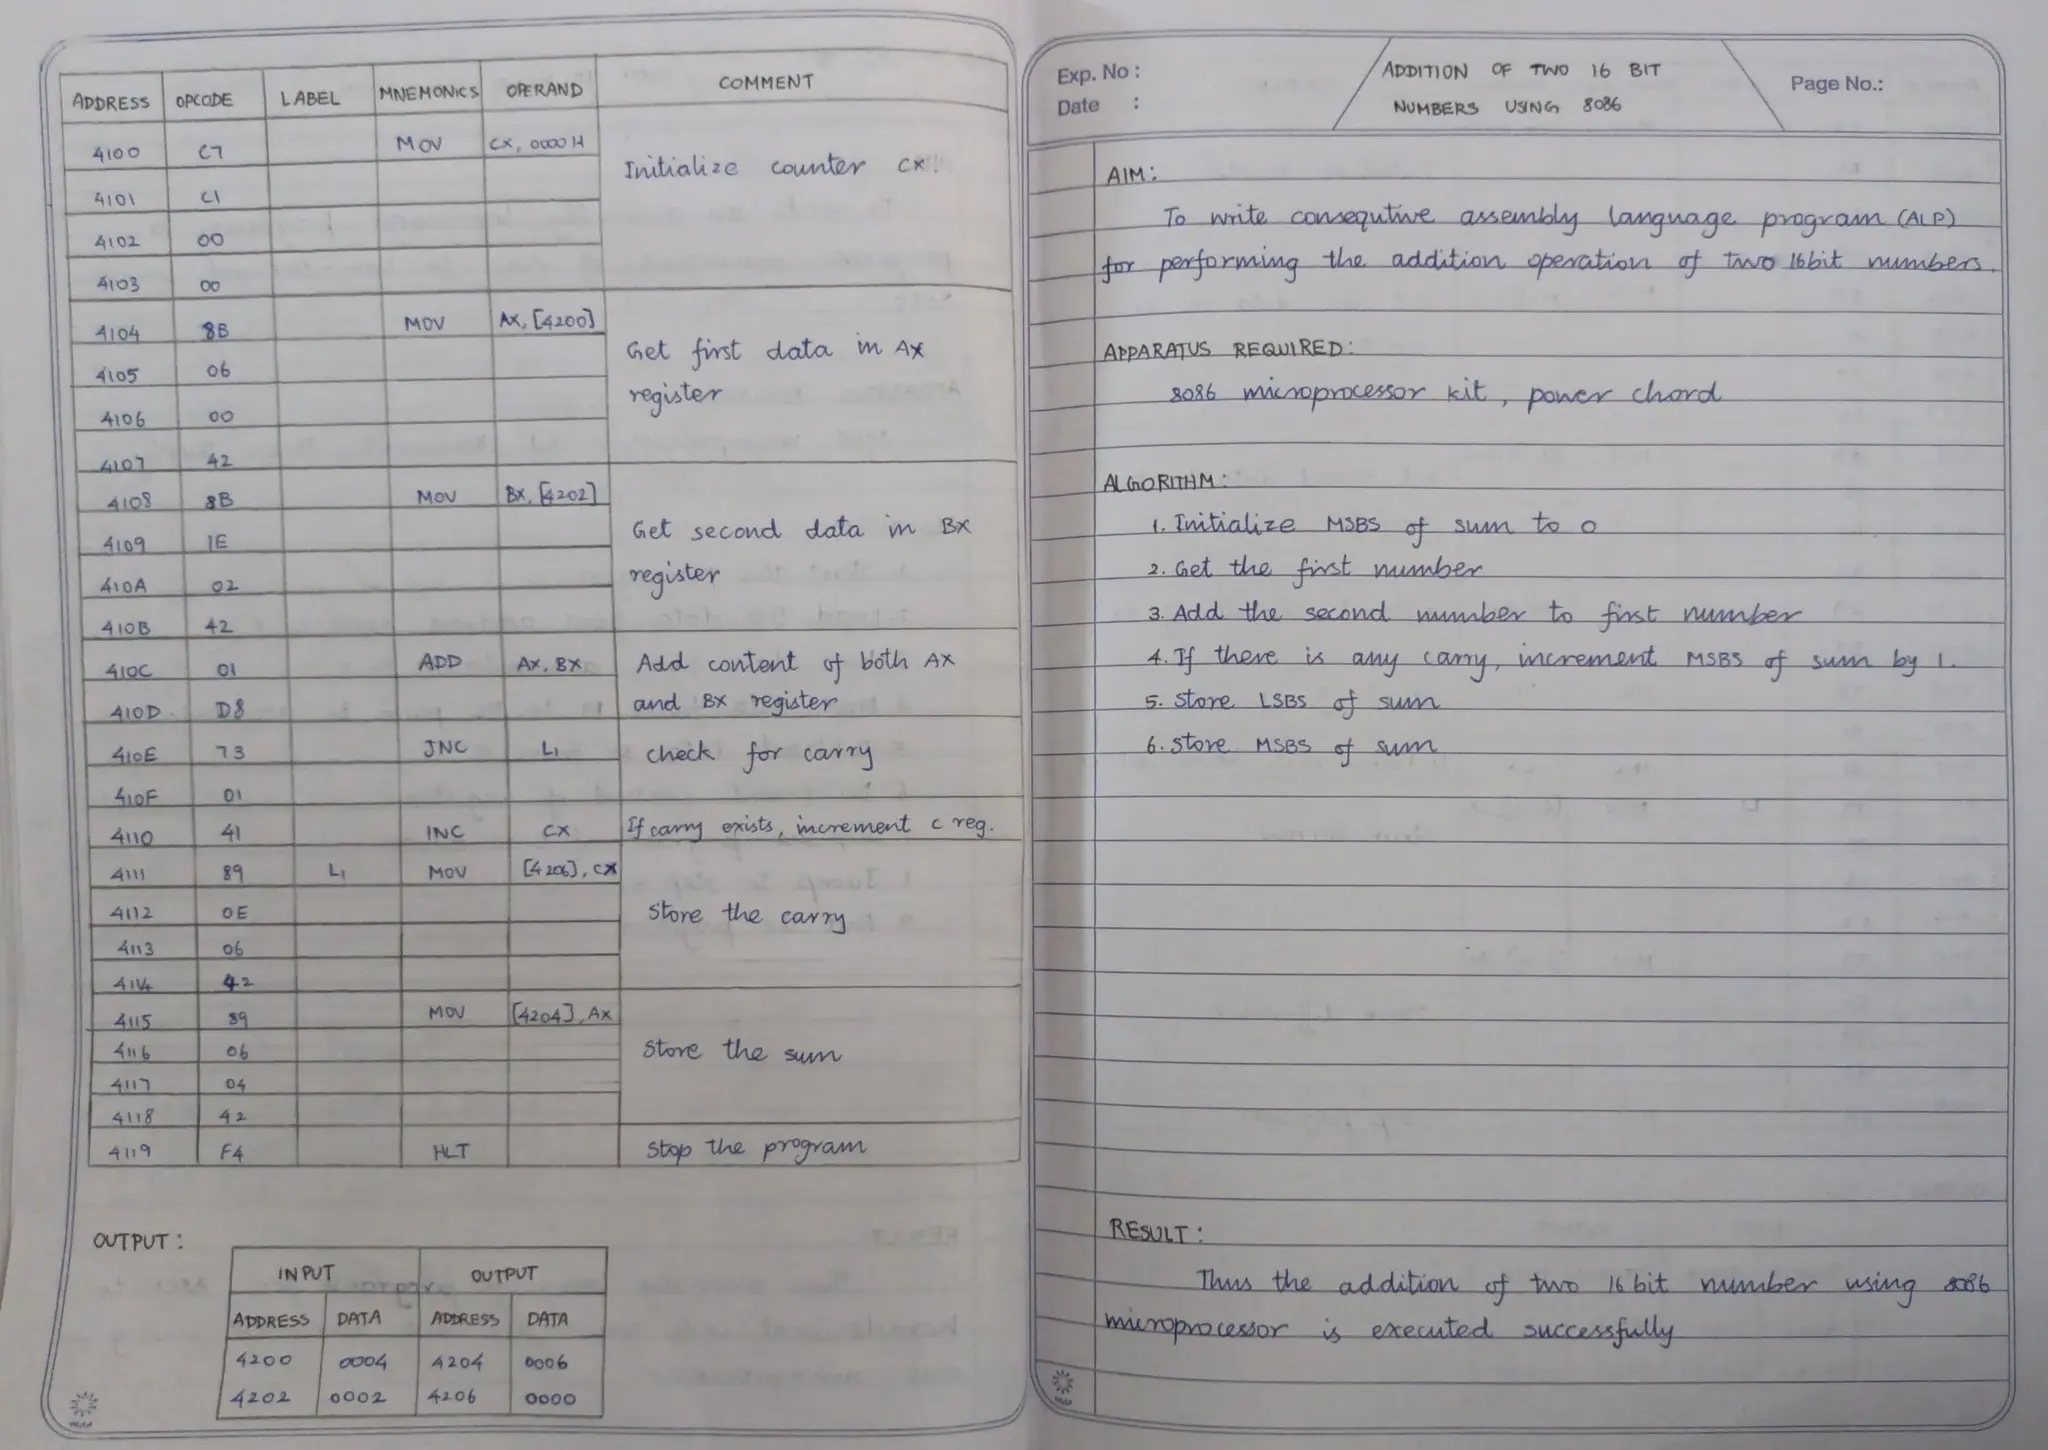 ADDRESS OPCODE LABEL MNEMONICS OPERAND COMMENT
4100 C7 MOV CX, 0000H
Initialize counter CX.
4101 C1
4102 00
4103 00
4104 8B MOV AX, [4200]
Get first data in AX
4105 06
register
4106 00
4107 42
4108 8B MOV BX, [4202]
Get second data in BX
4109 1E
register
410A 02
410B 42
410C 01 ADD AX, BX Add content of both AX
410D D8 and BX register
410E 73 JNC L1 check for carry
410F 01
4110 41 INC CX If carry exists, increment C reg.
4111 89 L1 MOV [4206], CX
4112 0E store the carry
4113 06
4114 42
4115 89 MOV [4204], AX
4116 06 Store the sum
4117 04
4118 42
4119 F4 HLT Stop the program
OUTPUT :
INPUT OUTPUT
ADDRESS DATA ADDRESS DATA
4200 0004 4204 0006
4202 0002 4206 0000
Exp. No :
Date :
ADDITION OF TWO 16 BIT
NUMBERS USING 8086
Page No.:
AIM :
To write consequtive assembly language program (ALP)
for performing the addition operation of two 16bit numbers.
APPARATUS REQUIRED :
8086 microprocessor kit, power chord
ALGORITHM :
1. Initialize MSBS of sum to 0
2. Get the first number
3. Add the second number to first number
4. If there is any carry, increment MSBS of sum by 1.
5. Store LSBS of sum
6. Store MSBS of sum
RESULT :
Thus the addition of two 16 bit number using 8086
microprocessor is executed successfully